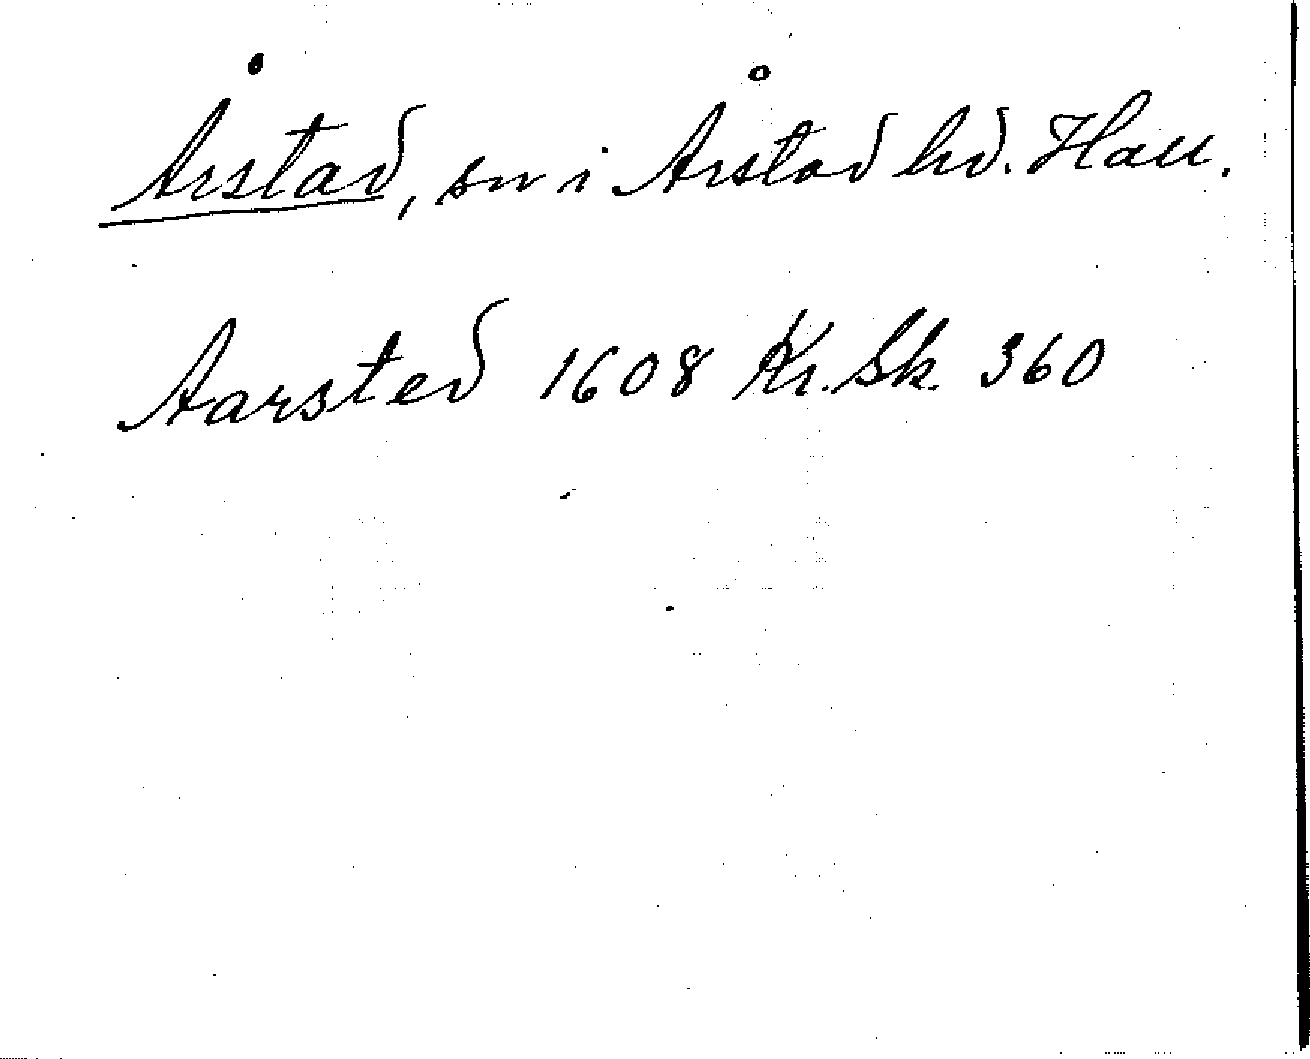 Årstad, sn i Årstad hd. Hall.
Aarsted 1608 Kr. Sk. 360